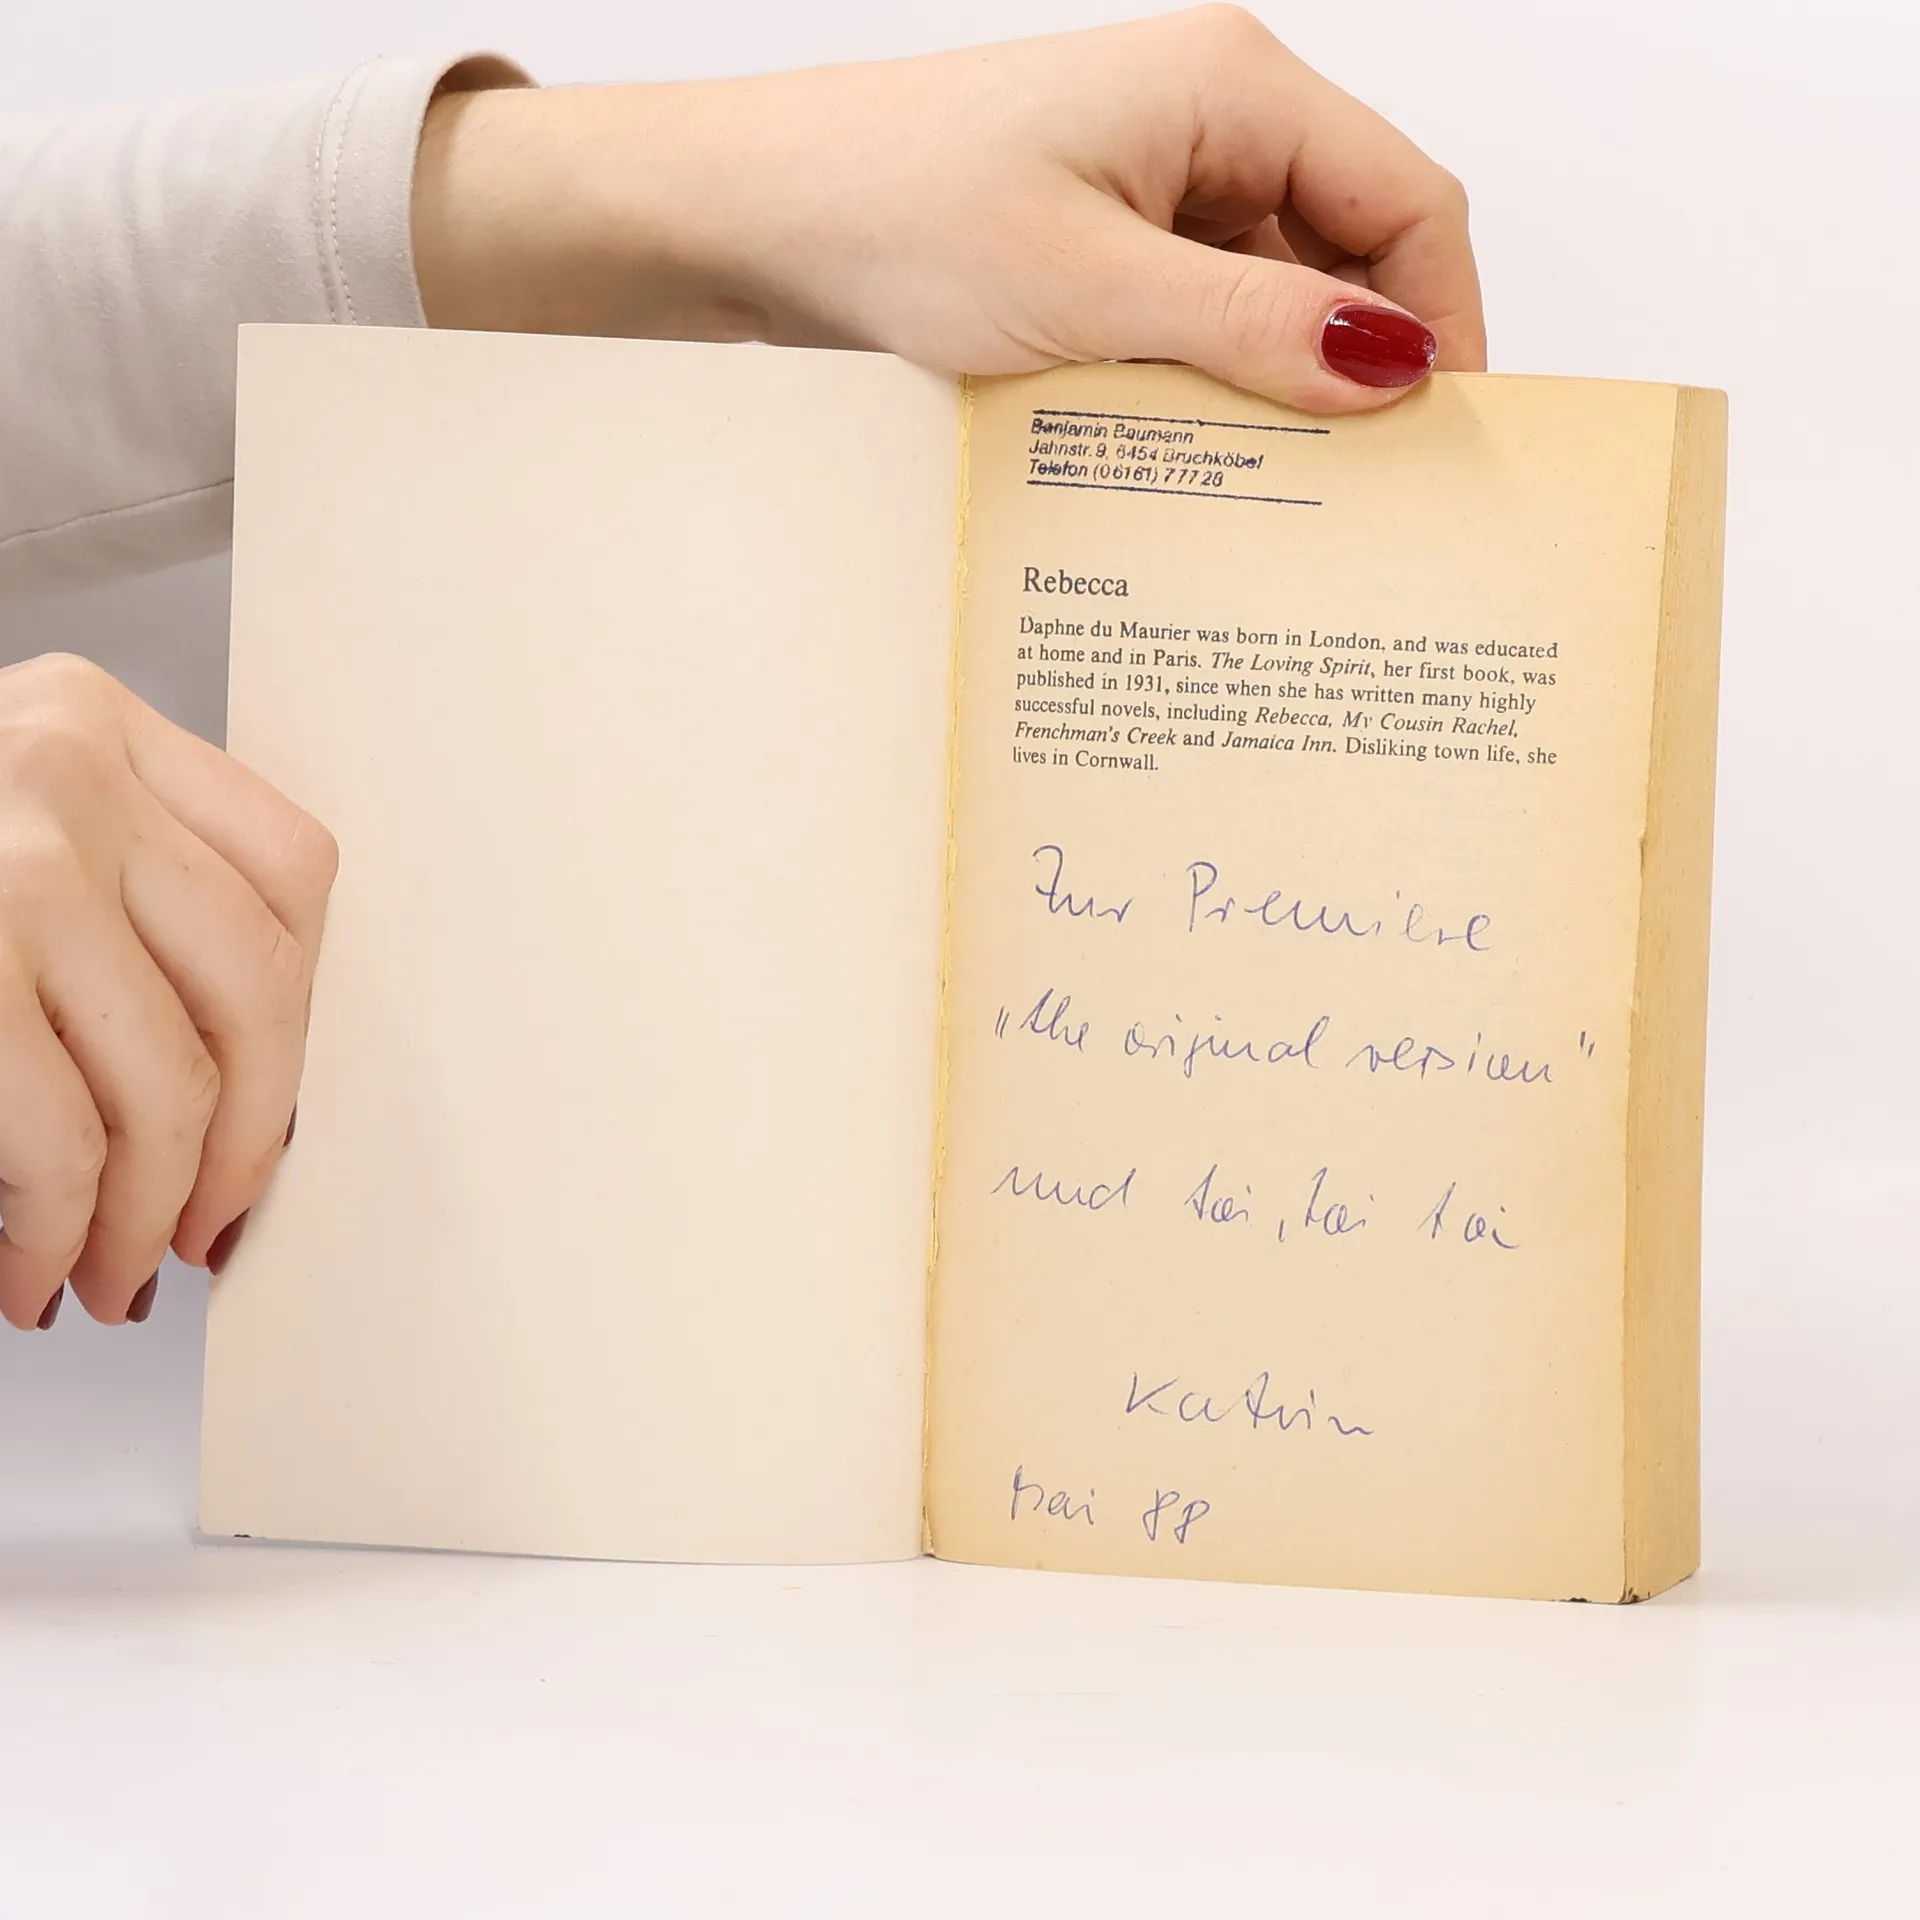 Benjamin Baumann
Jahnstr. 9, 6454 Bruchköbel
Telefon (06161) 77728
Rebecca
Daphne du Maurier was born in London, and was educated
at home and in Paris. The Loving Spirit, her first book, was
published in 1931, since when she has written many highly
successful novels, including Rebecca, My Cousin Rachel,
Frenchman's Creek and Jamaica Inn. Disliking town life, she
lives in Cornwall.
Zur Premiere
„the original version"
und toi, toi toi
Katrin
Mai 88